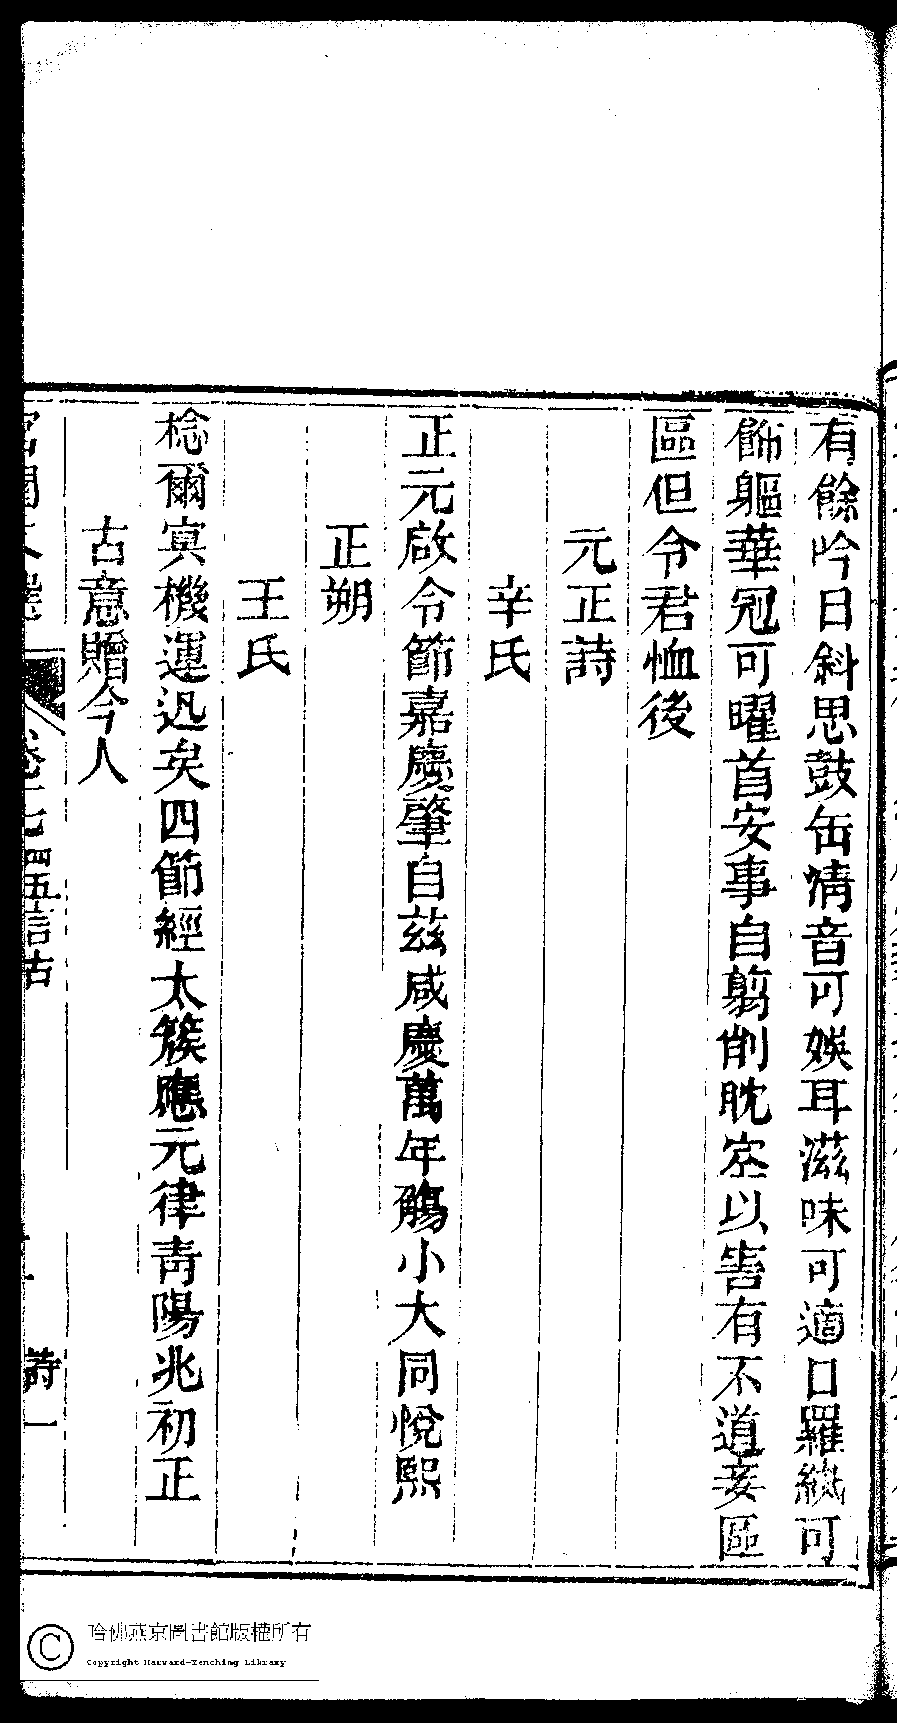 有餘吟日斜思鼓缶情音可娛耳滋味可適口羅紈可
飾軀華冠可曜首安事自翦削耽空以害有不道妾區
區但令君恤後
元正詩
辛氏
正元啟令節嘉慶肇自茲咸慶萬年觴小大同悅熙
正朔
王氏
稔爾寘機運迅矣四節經太簇應元律青陽兆初正
古意贈今人
宮閨文選
卷二七四五言古
詩一
哈佛燕京圖書館版權所有
Copyright Harvard-Yenching Library